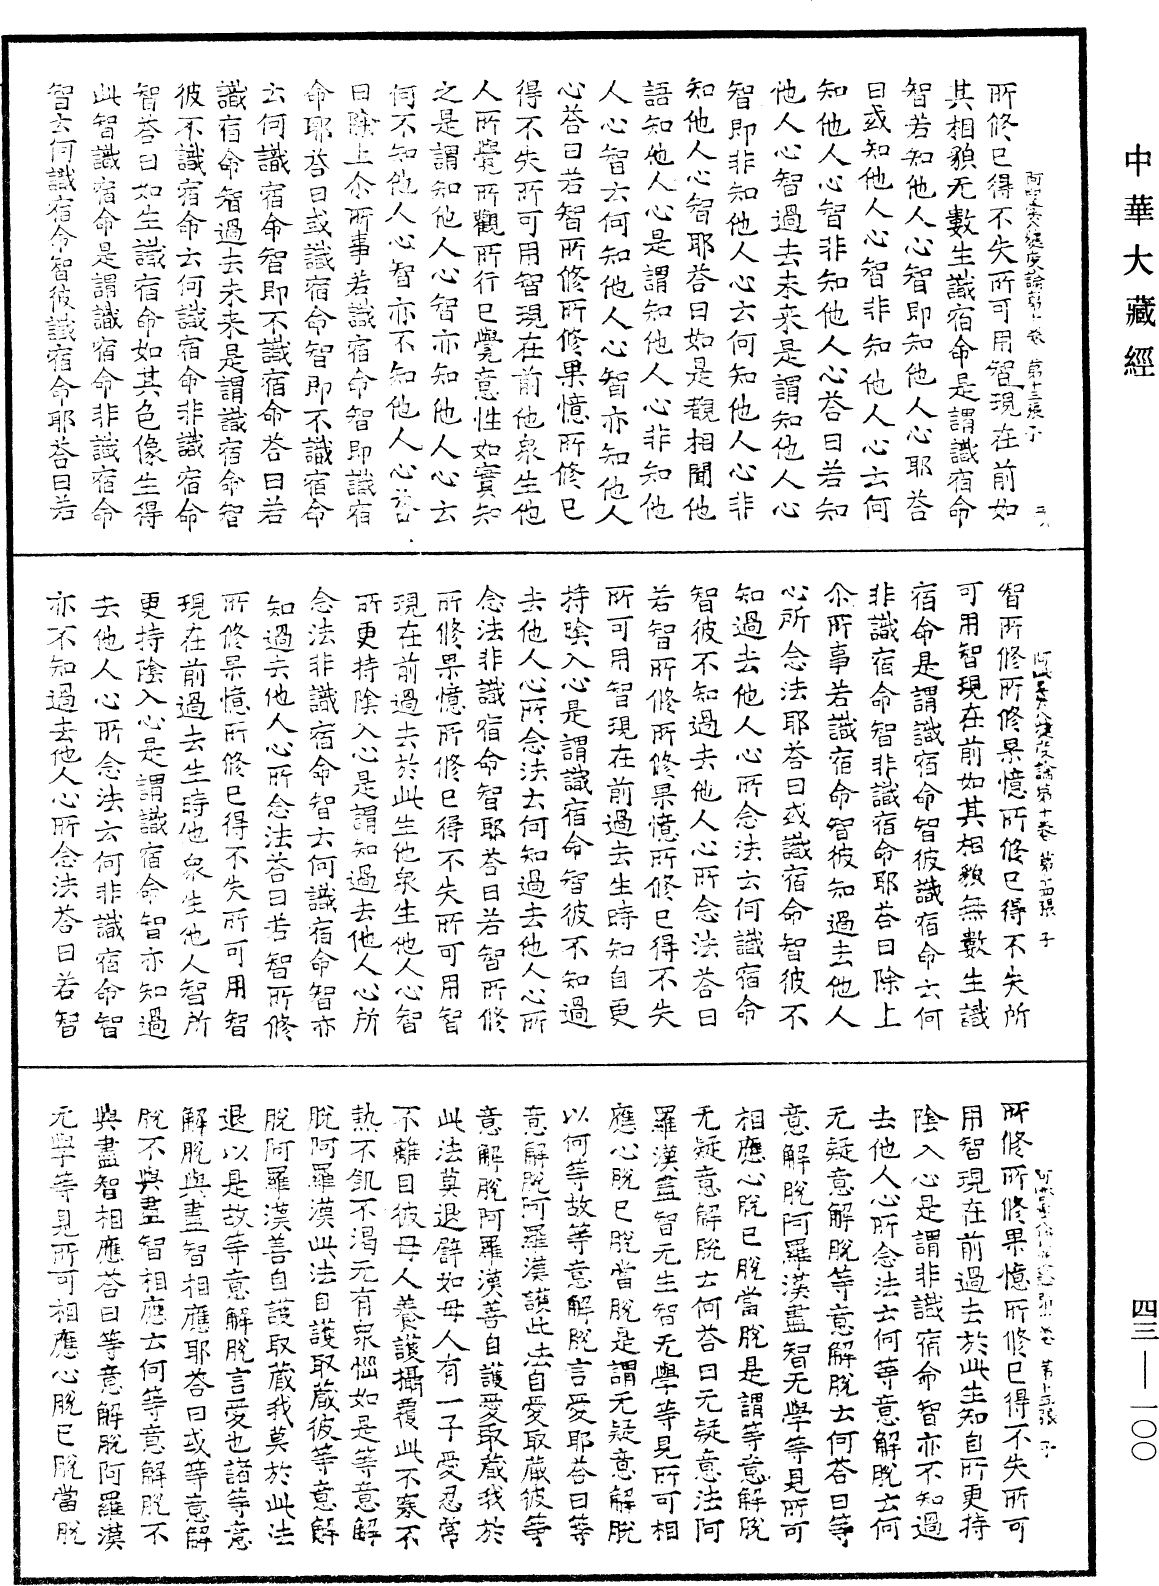 中華大藏經
所修已得不失所可用智現在前如
其相貌无數生識宿命是謂識宿命
智若知他人心智即知他人心耶荅
曰或知他人心智非知他人心云何
知他人心智非知他人心荅曰若知
他人心智過去未来是謂知他人心
智即非知他人心云何知他人心非
知他人心智耶荅曰如是覩相聞他
語知他人心是謂知他人心非知他
人心智云何知他人心智亦知他人
心荅曰若智所修所修果憶所修已
得不失所可用智現在前他衆生他
人所覺所觀所行已覺意性如實知
之是謂知他人心智亦知他人心云
何不知他人心智亦不知他人心荅
曰除上尒所事若識宿命智即識宿
命耶荅曰或識宿命智即不識宿命
云何識宿命智即不識宿命荅曰若
識宿命智過去未来是謂識宿命智
彼不識宿命云何識宿命非識宿命
智荅曰如生識宿命如其色像生得
此智識宿命是謂識宿命非識宿命
智云何識宿命智彼識宿命耶荅曰若
智所修所修果憶所修已得不失所
可用智現在前如其相貌無數生識
宿命是謂識宿命智彼識宿命云何
非識宿命智非識宿命耶荅曰除上
尒所事若識宿命智彼知過去他人
心所念法耶荅曰或識宿命智彼不
知過去他人心所念法云何識宿命
智彼不知過去他人心所念法荅曰
若智所修所修果憶所修已得不失
所可用智現在前過去生時知自更
持陰入心是謂識宿命智彼不知過
去他人心所念法云何知過去他人心所
念法非識宿命智耶荅曰若智所修
所修果憶所修已得不失所可用智
現在前過去於此生他衆生他人心智
所更持陰入心是謂知過去他人心所
念法非識宿命智云何識宿命智亦
知過去他人心所念法荅曰若智所修
所修果憶所修已得不失所可用智
現在前過去生時他衆生他人智所
更持陰入心是謂識宿命智亦知過
去他人心所念法云何非識宿命智
亦不知過去他人心所念法荅曰若智
所修所修果憶所修已得不失所可
用智現在前過去於此生知自所更持
陰入心是謂非識宿命智亦不知過
去他人心所念法云何等意解脫云何
无疑意解脫等意解脫云何荅曰等
意解脫阿羅漢盡智无學等見所可
相應心脫已脫當脫是謂等意解脫
无疑意解脫云何荅曰无疑意法阿
羅漢盡智无生智无學等見所可相
應心脫已脫當脫是謂无疑意解脫
以何等故等意解脫言愛耶荅曰等
意解脫阿羅漢護此法自愛取藏彼等
意解脫阿羅漢善自護愛取藏我於
此法莫退譬如母人有一子愛忍常
不離目彼母人養護攝覆此不寒不
熱不飢不渴无有衆惱如是等意解
脫阿羅漢此法自護取藏彼等意解
脫阿羅漢善自護取藏我莫於此法
退以是故等意解脫言愛也諸等意
解脫與盡智相應耶荅曰或等意解
脫不與盡智相應云何等意解脫不
與盡智相應荅曰等意解脫阿羅漢
无學等見所可相應心脫已脫當脫
四三—一〇〇